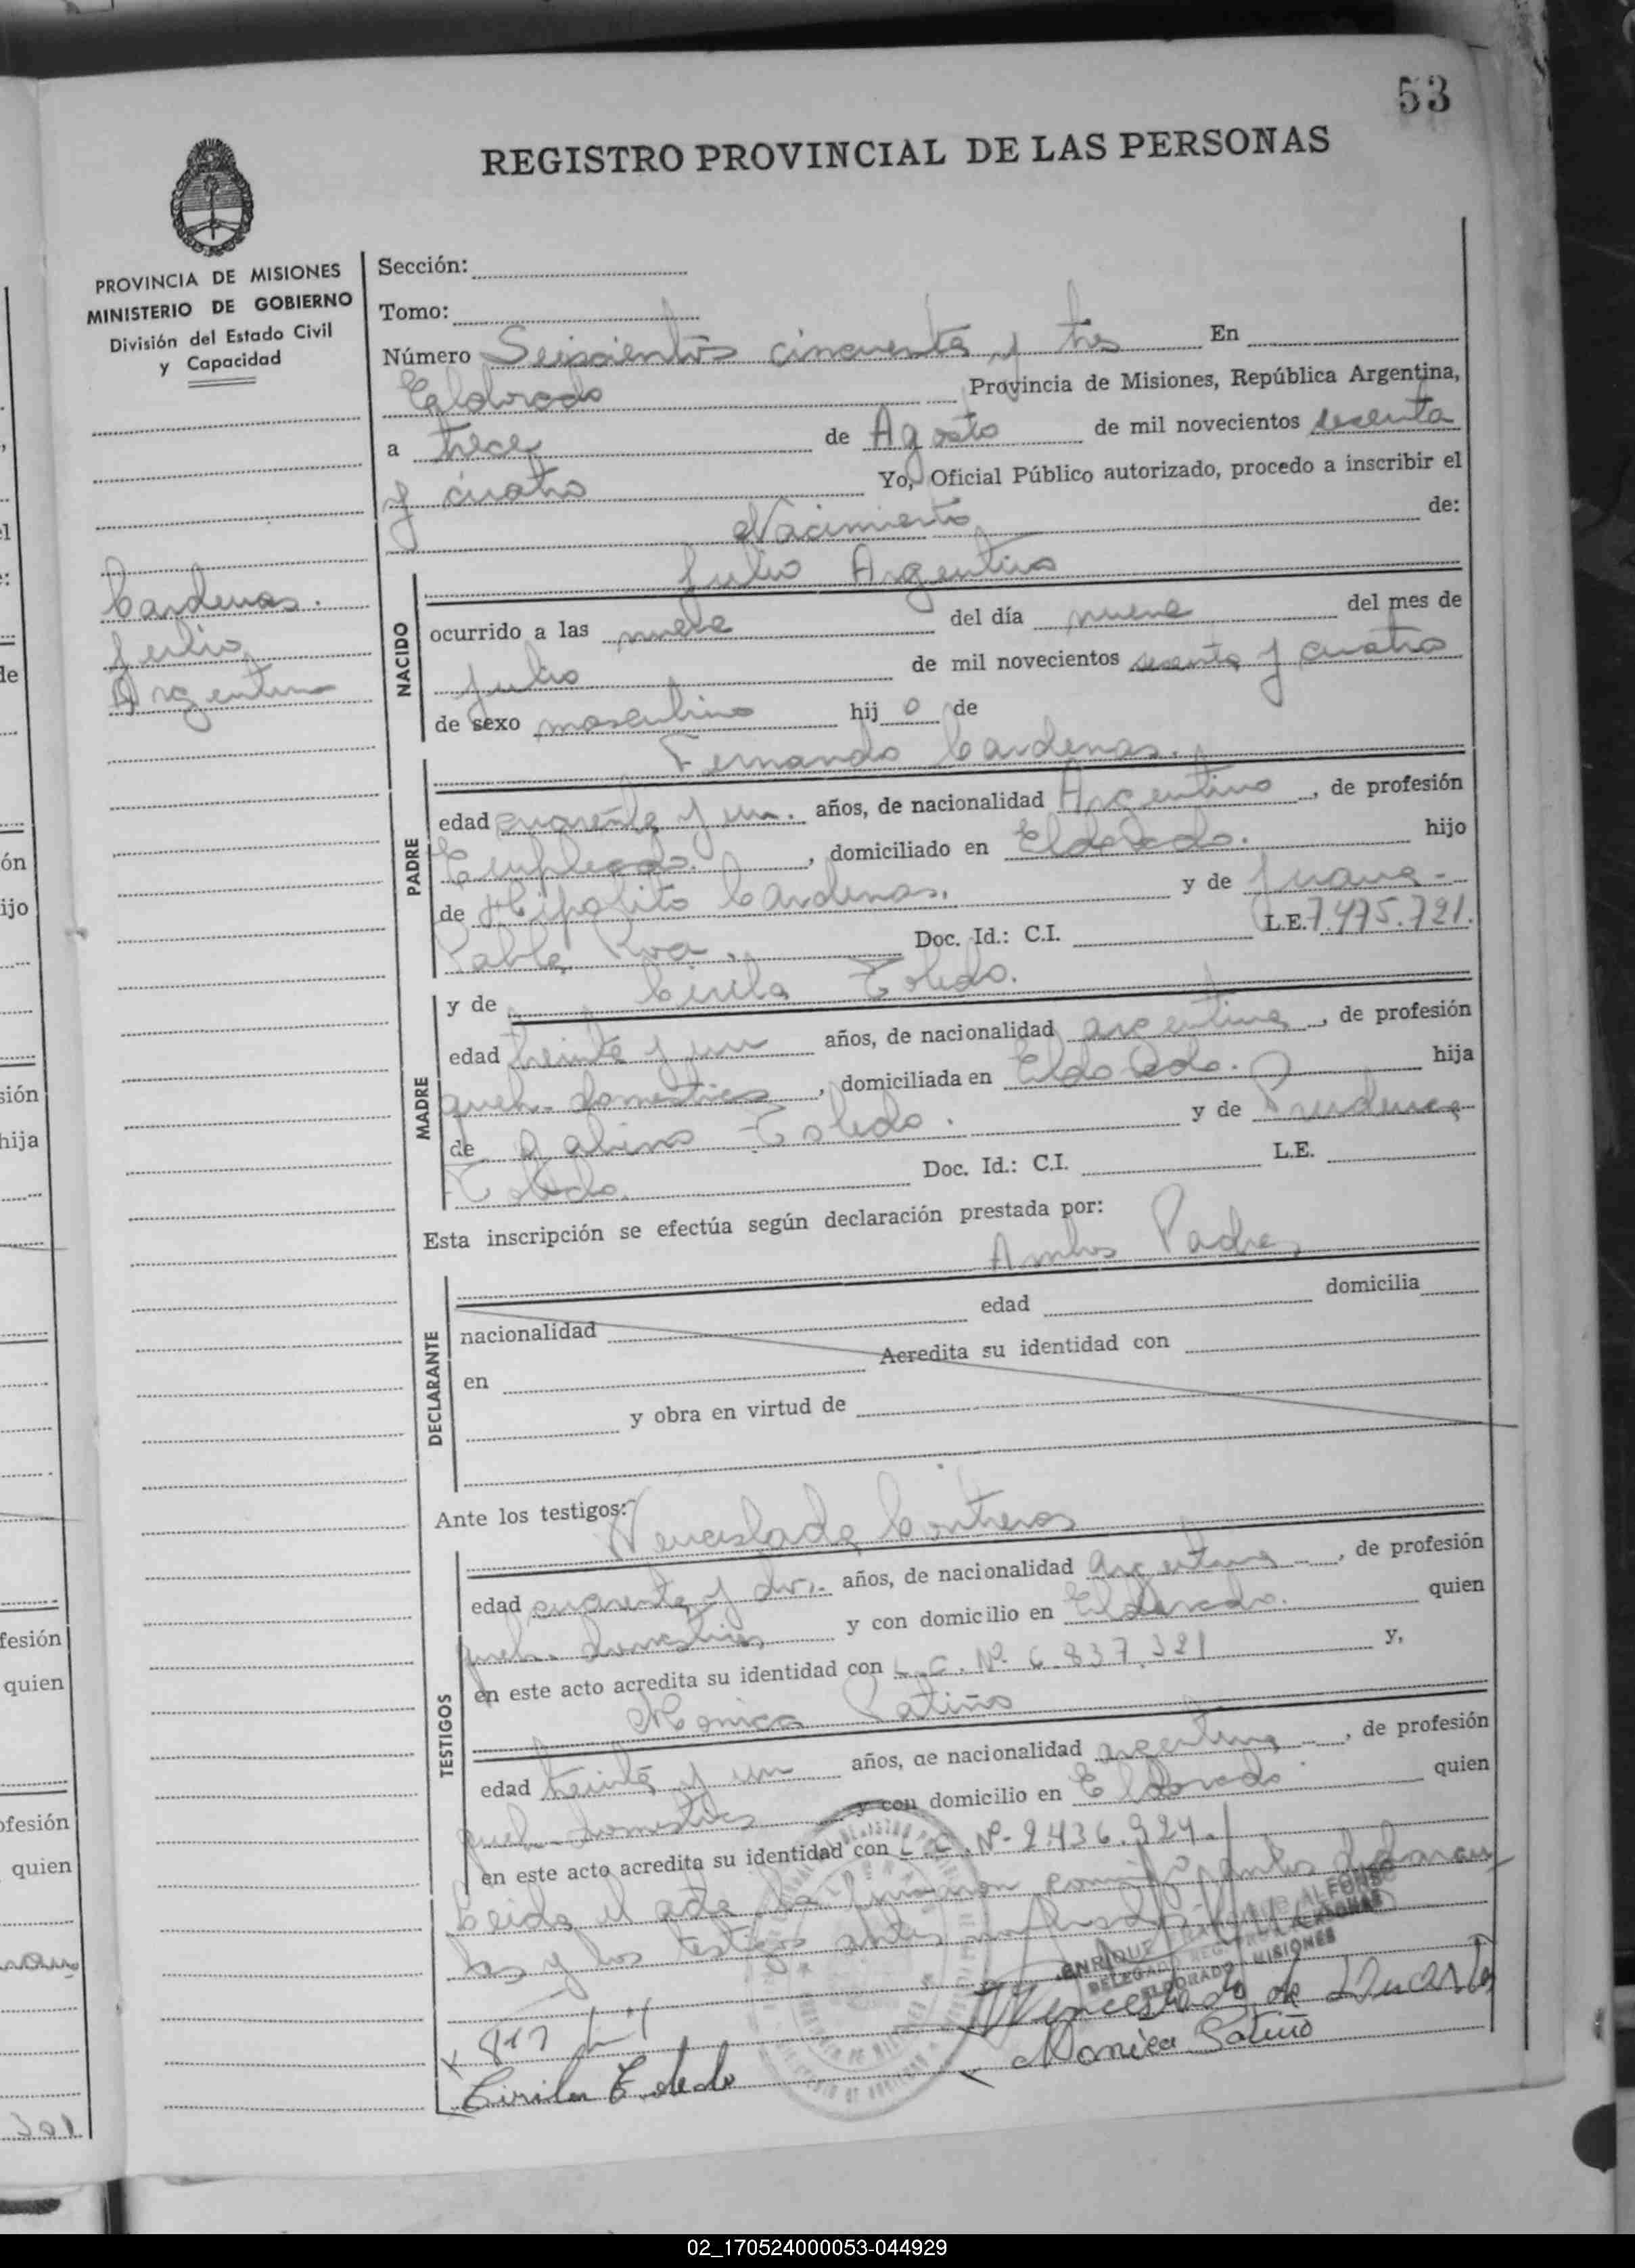 53
REGISTRO PROVINCIAL DE LAS PERSONAS
PROVINCIA DE MISIONES
MINISTERIO DE GOBIERNO
División del Estado Civil
y Capacidad
Cardenas.
Julio
Argentino
Sección:
Tomo:
Número Seiscientos cincuenta y tres En
Eldorado Provincia de Misiones, República Argentina,
a trece de Agosto de mil novecientos sesenta
y cuatro Yo, Oficial Público autorizado, procedo a inscribir el
Nacimiento de:
Julio Argentino
NACIDO
ocurrido a las nueve del día nueve del mes de
Julio de mil novecientos sesenta y cuatro
de sexo masculino hij o de
Fernando Cardenas.
PADRE
edad cuarenta y un. años, de nacionalidad Argentino, de profesión
Empleado., domiciliado en Eldorado. hijo
de Hipolito Cardenas. y de Juana
Pabla Doc. Id.: C.I. L.E. 7.475.721.
y de Cirila Toledo.
MADRE
edad treinta y un años, de nacionalidad argentina, de profesión
queh. domesticos, domiciliada en Eldorado. hija
de Gabino Toledo. y de Prudencia
Toledo. Doc. Id.: C.I. L.E.
Esta inscripción se efectúa según declaración prestada por:
Ambos Padres
DECLARANTE
nacionalidad edad domicilia
en Acredita su identidad con
y obra en virtud de
Ante los testigos:
Wenceslada Contreras
TESTIGOS
edad cuarenta y dos.- años, de nacionalidad argentina, de profesión
queh. domesticos y con domicilio en Eldorado. quien
en este acto acredita su identidad con L.C. Nº 6.837.321 y,
Monica Patiño
edad treinta y un años, de nacionalidad argentina, de profesión
queh. domesticos y con domicilio en Eldorado quien
en este acto acredita su identidad con L.C. Nº- 2.436.924.
Leida el acta la firmaron conmigo ambos declaran
tes y los testigos antes nombrados
ENRIQUE ALFONSO
DELEGADO
ELDORADO MISIONES
Wenceslada de Duarte
Monica Patiño
Cirila Toledo
02_170524000053-044929